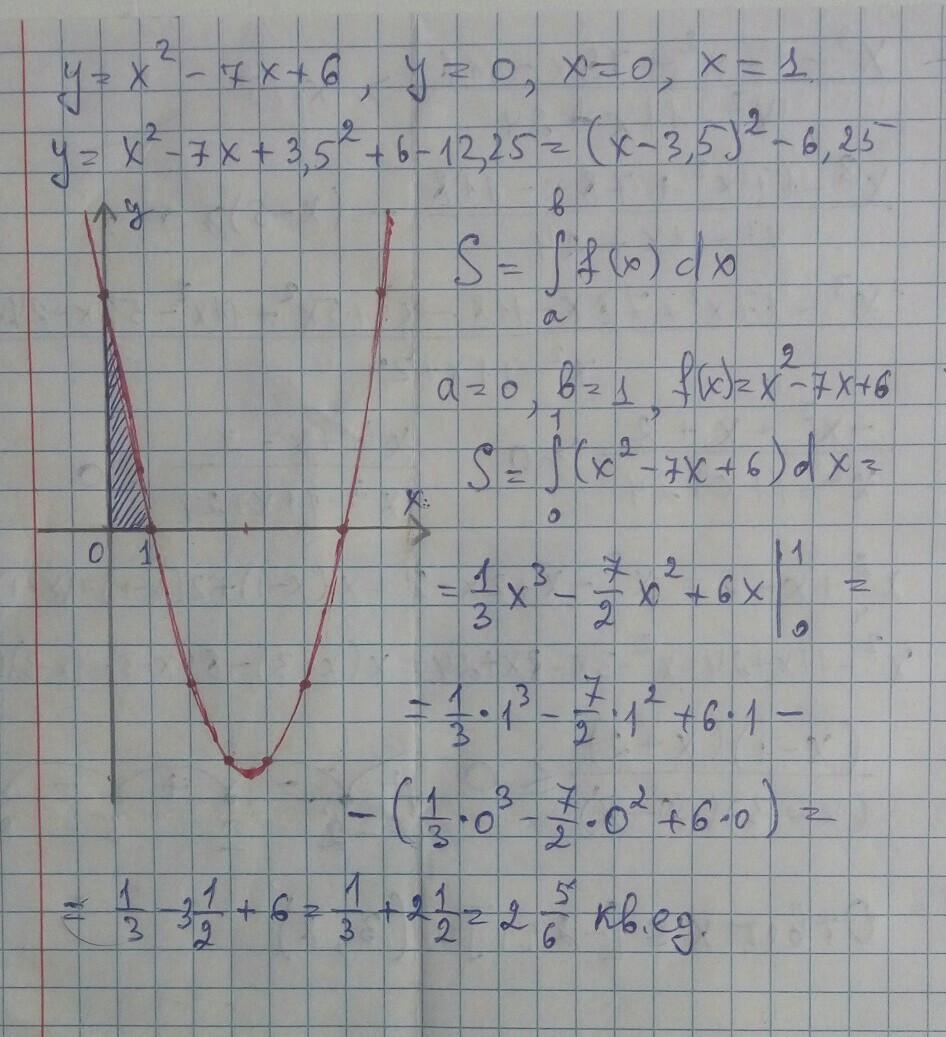 y = x² - 7x + 6, y = 0, x = 0, x = 1.
y = x² - 7x + 3,5² + 6 - 12,25 = (x - 3,5)² - 6,25
y
b
S = ∫ f(x) dx
a
a = 0, b = 1, f(x) = x² - 7x + 6
1
S = ∫ (x² - 7x + 6) dx =
0
x
0 1
= 1/3 x³ - 7/2 x² + 6x |₀¹ =
= 1/3 · 1³ - 7/2 · 1² + 6 · 1 -
- (1/3 · 0³ - 7/2 · 0² + 6 · 0) =
= 1/3 - 3 1/2 + 6 = 1/3 + 2 1/2 = 2 5/6 кв.ед.